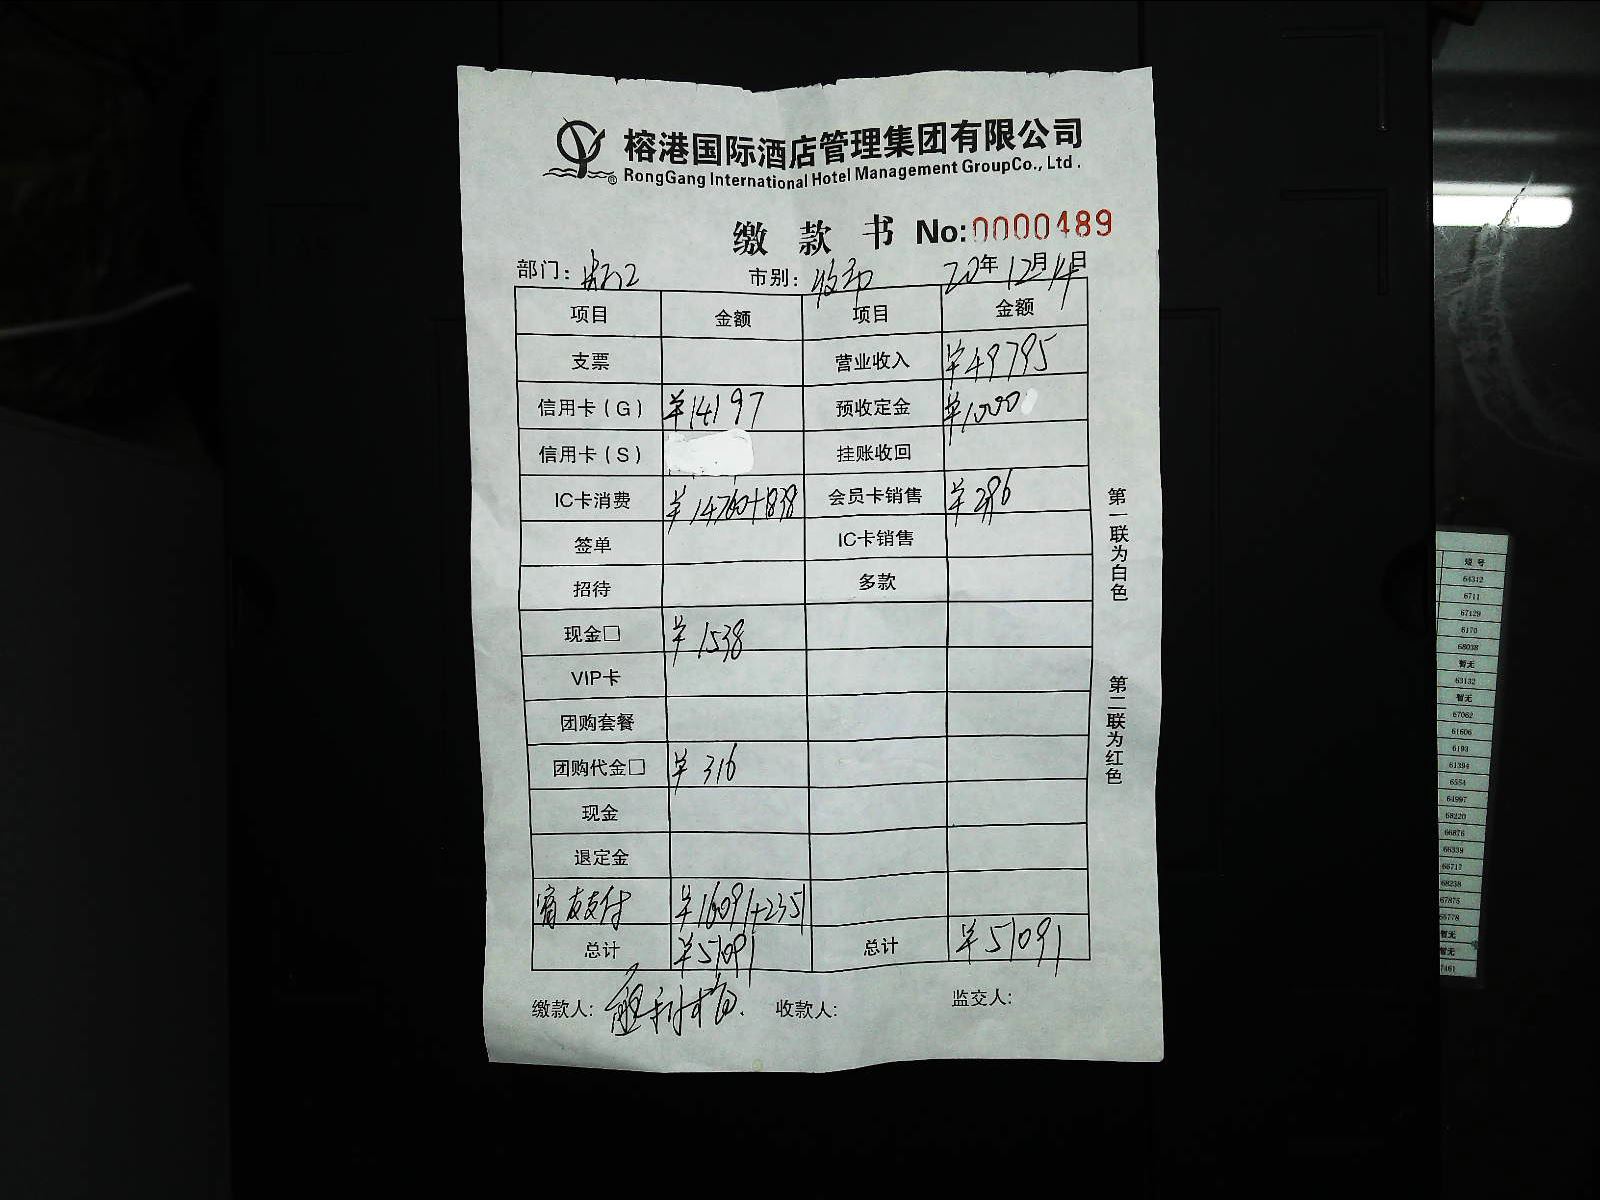 榕港国际酒店管理集团有限公司
RongGang International Hotel Management GroupCo., Ltd.
缴款书 No:0000489
部门: 市别: 20年12月14日
项目 金额 项目 金额
支票 营业收入 ¥49795
信用卡(G) ¥14197 预收定金 ¥1000
信用卡(S) 挂账收回
IC卡消费 ¥14760+1838 会员卡销售 ¥296
签单 IC卡销售
招待 多款
现金□ ¥1538
VIP卡
团购套餐
团购代金□ ¥316
现金
退定金
支付 ¥16091+2351
总计 ¥51091 总计 ¥51091
缴款人: 收款人: 监交人:
第一联为白色
第二联为红色
短号
64312
6711
67129
6170
68038
暂无
63132
暂无
67062
61606
6193
61394
6554
64997
68220
66876
66339
66717
68238
67875
65778
暂无
暂无
7461